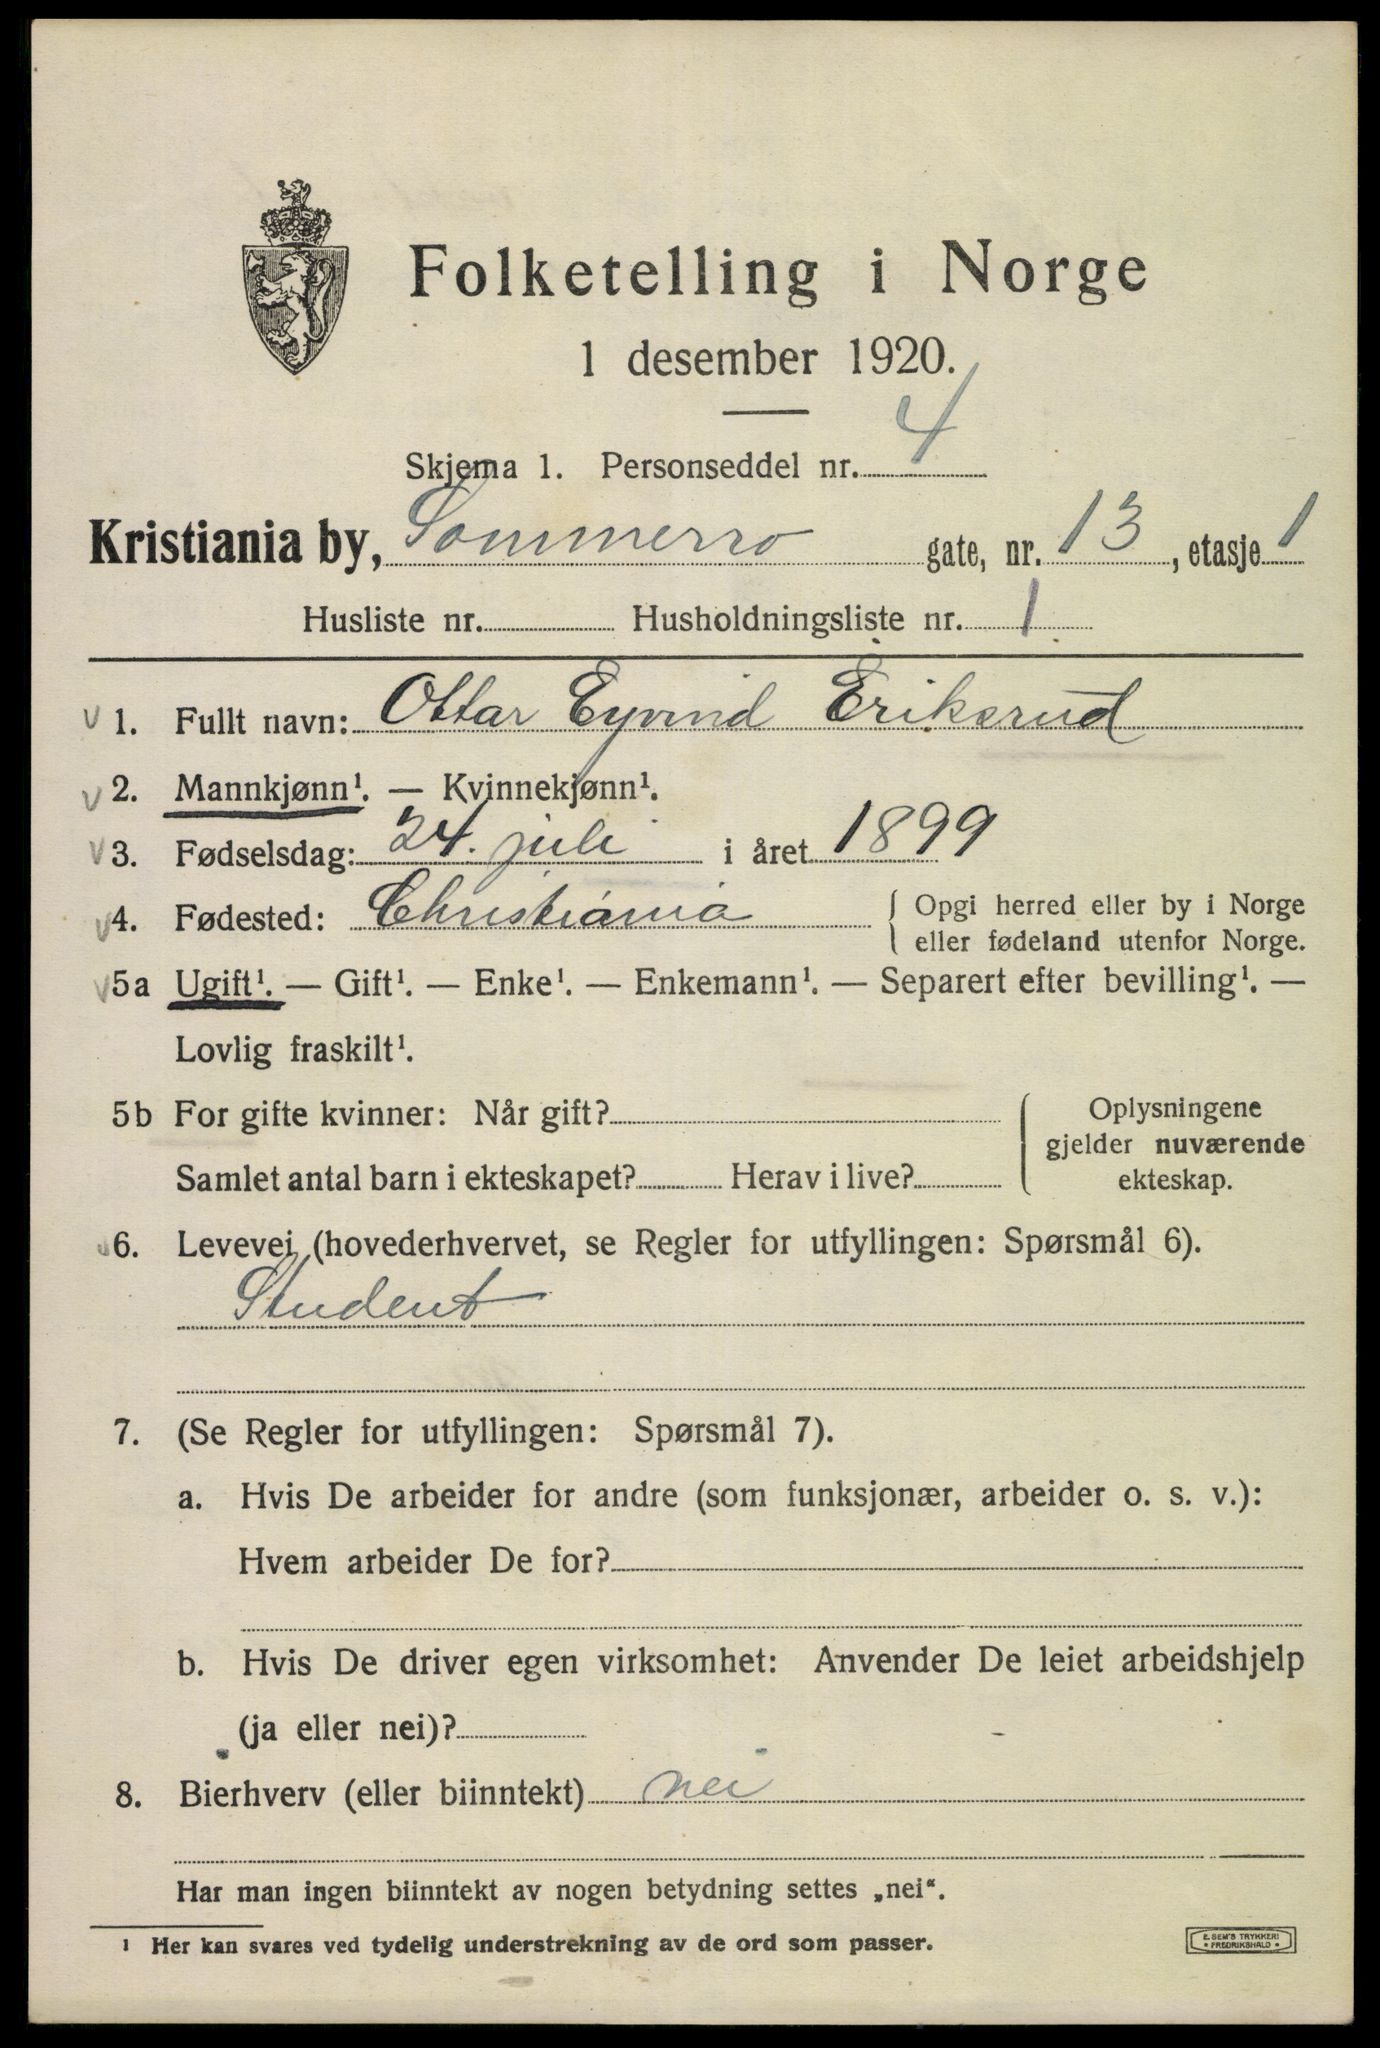 Folketelling i Norge
1 desember 1920.
Skjema 1. Personseddel nr. 4
Kristiania by, Sommerro gate, nr. 13, etasje 1
Husliste nr. Husholdningsliste nr. 1
v 1. Fullt navn: Ottar Eyvind Eriksrud
v 2. Mannkjønn¹. — Kvinnekjønn¹.
v 3. Fødselsdag: 24. juli i året 1899
v 4. Fødested: Christiania { Opgi herred eller by i Norge
eller fødeland utenfor Norge.
v 5a Ugift¹. — Gift¹. — Enke¹. — Enkemann¹. — Separert efter bevilling¹. —
Lovlig fraskilt¹.
5b For gifte kvinner: Når gift? { Oplysningene
gjelder nuværende
Samlet antal barn i ekteskapet? Herav i live? ekteskap.
v 6. Levevei (hovederhvervet, se Regler for utfyllingen: Spørsmål 6).
Student
7. (Se Regler for utfyllingen: Spørsmål 7).
a. Hvis De arbeider for andre (som funksjonær, arbeider o. s. v.):
Hvem arbeider De for?
b. Hvis De driver egen virksomhet: Anvender De leiet arbeidshjelp
(ja eller nei)?
8. Bierhverv (eller biinntekt) nei
Har man ingen biinntekt av nogen betydning settes „nei“.
¹ Her kan svares ved tydelig understrekning av de ord som passer.
E. SEM'S TRYKKERI
• FREDRIKSHALD •